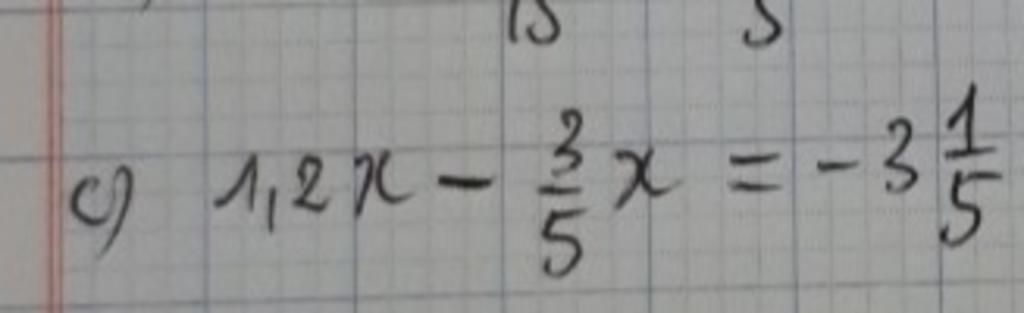 15 5
c) 1,2x - \frac{3}{5}x = -3\frac{1}{5}